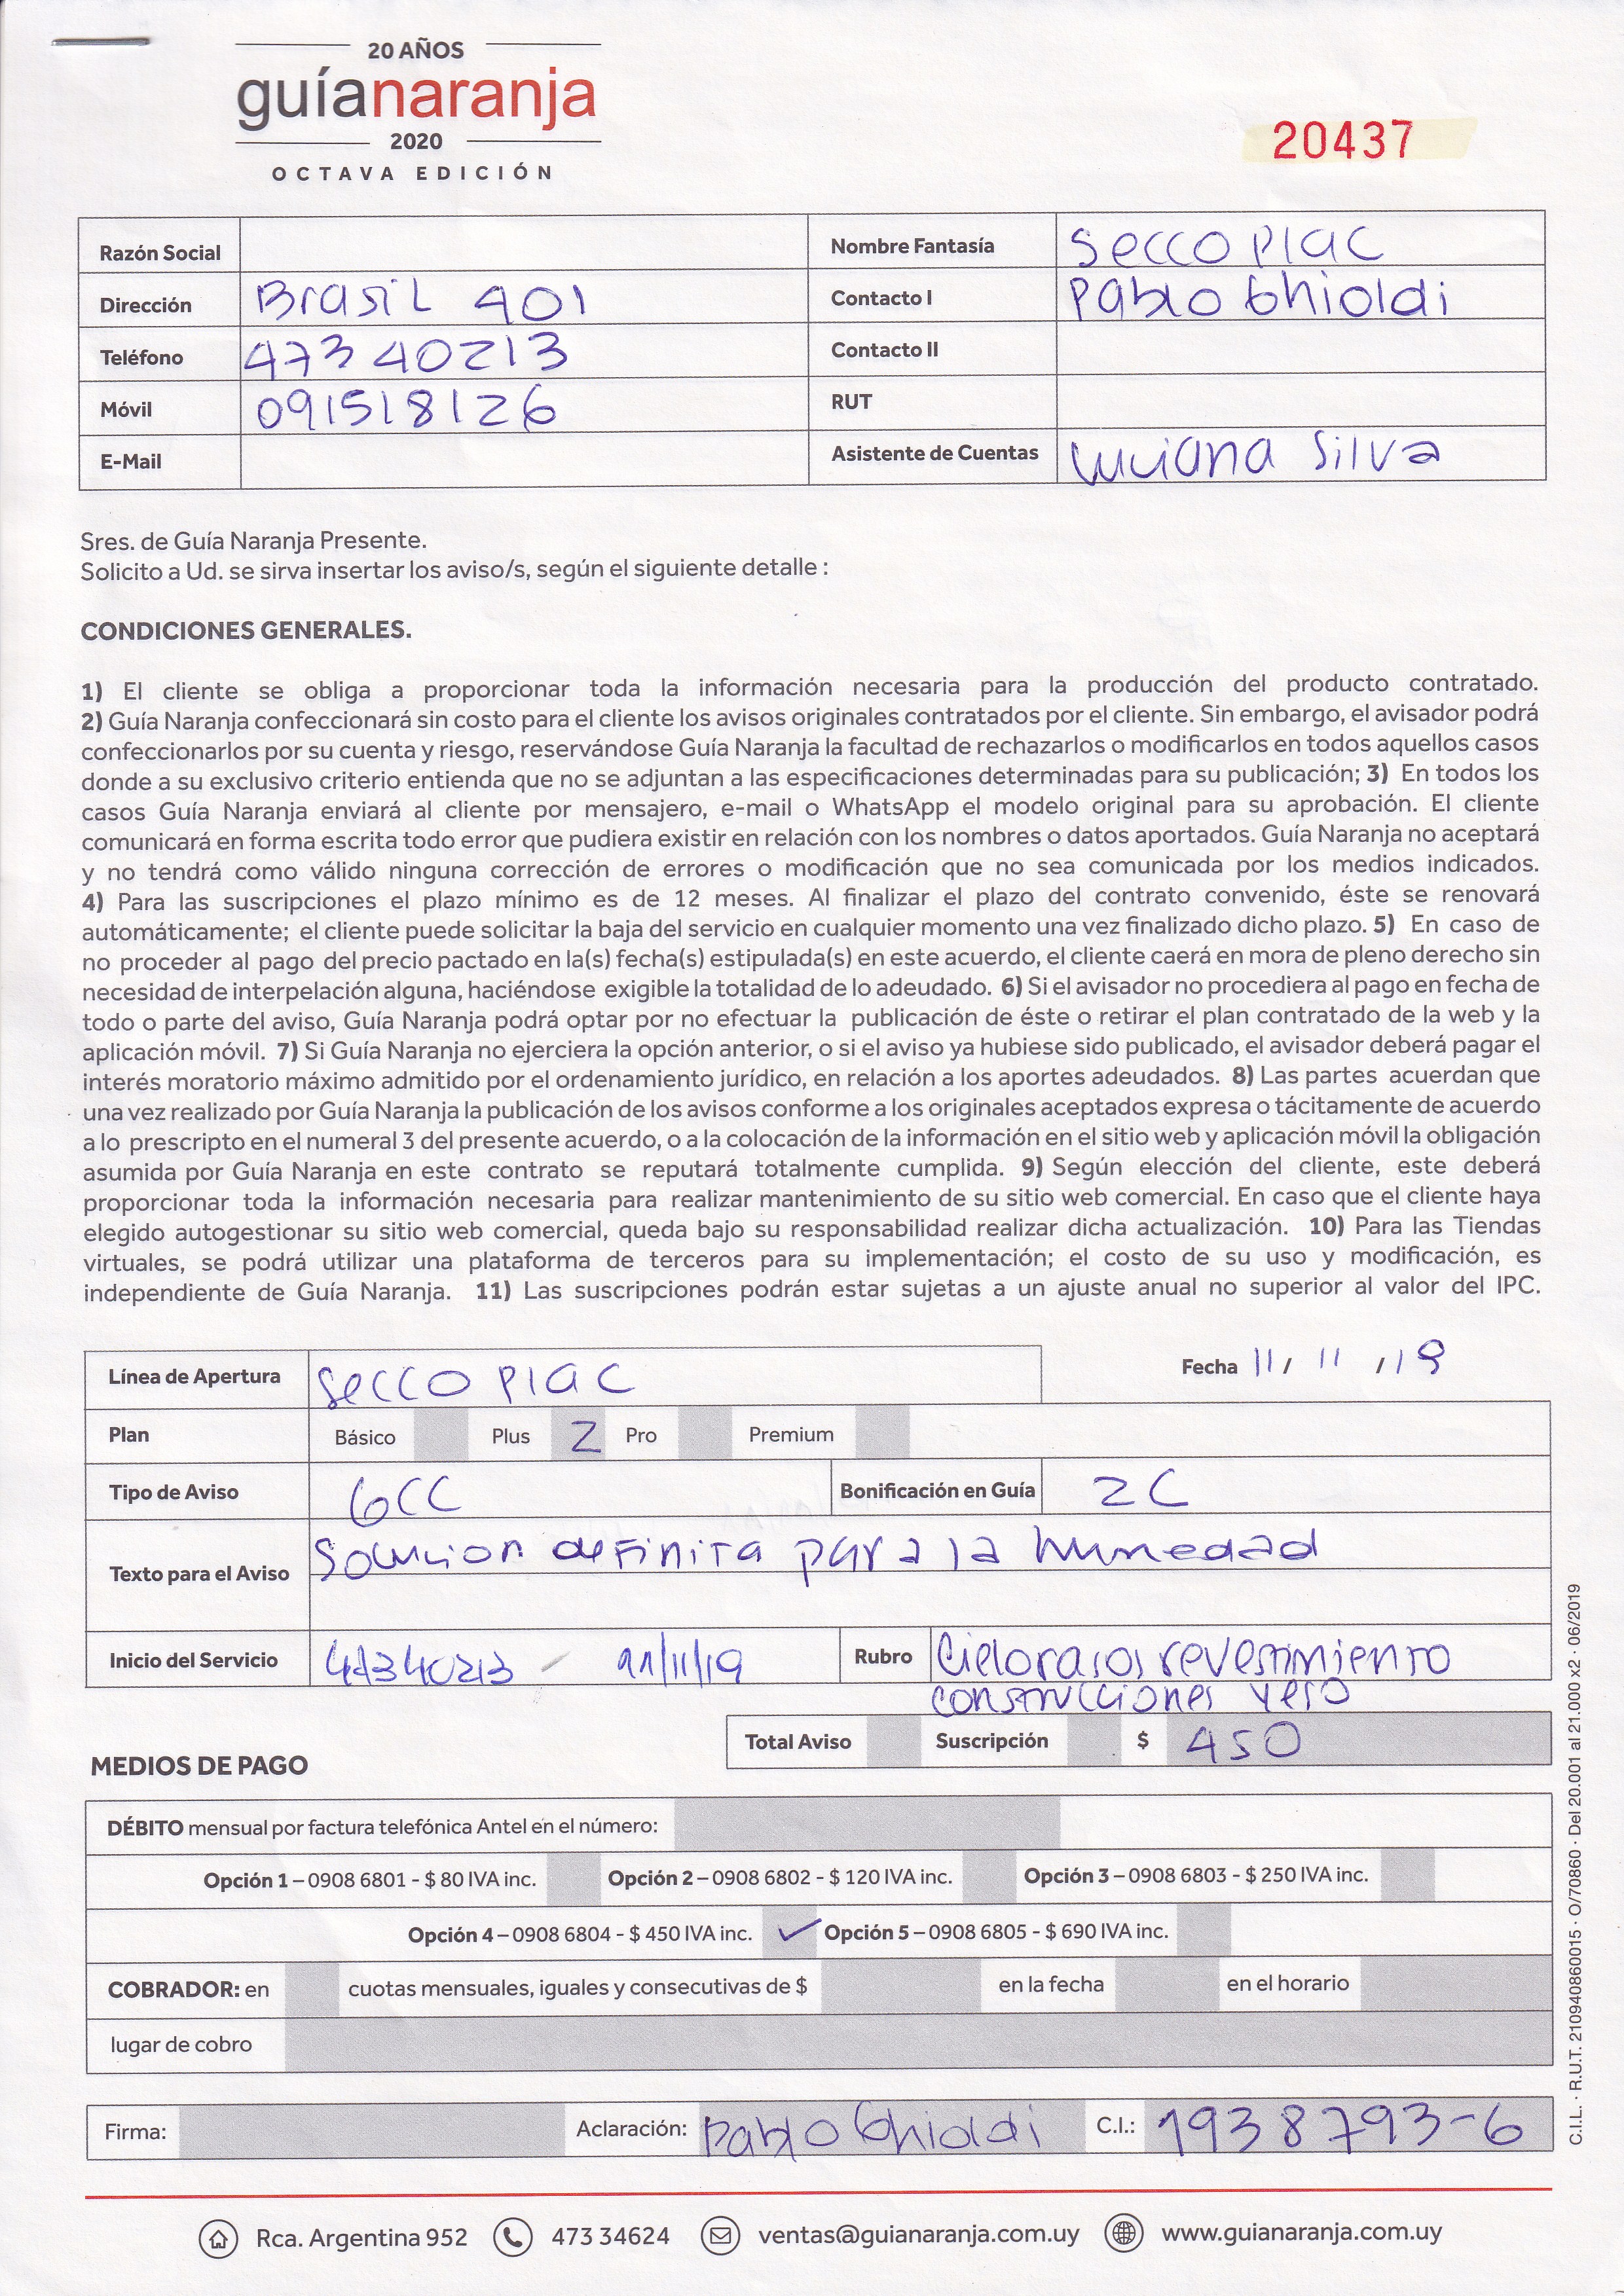 20 AÑOS
guíanaranja
2020
OCTAVA EDICIÓN
20437
Razón Social
Nombre Fantasía Secco Plac
Dirección Brasil 401
Contacto I Pablo Ghioldi
Teléfono 473 40213
Contacto II
Móvil 091518126
RUT
E-Mail
Asistente de Cuentas Luciana Silva
Sres. de Guía Naranja Presente.
Solicito a Ud. se sirva insertar los aviso/s, según el siguiente detalle :
CONDICIONES GENERALES.
1) El cliente se obliga a proporcionar toda la información necesaria para la producción del producto contratado.
2) Guía Naranja confeccionará sin costo para el cliente los avisos originales contratados por el cliente. Sin embargo, el avisador podrá
confeccionarlos por su cuenta y riesgo, reservándose Guía Naranja la facultad de rechazarlos o modificarlos en todos aquellos casos
donde a su exclusivo criterio entienda que no se adjuntan a las especificaciones determinadas para su publicación; 3) En todos los
casos Guía Naranja enviará al cliente por mensajero, e-mail o WhatsApp el modelo original para su aprobación. El cliente
comunicará en forma escrita todo error que pudiera existir en relación con los nombres o datos aportados. Guía Naranja no aceptará
y no tendrá como válido ninguna corrección de errores o modificación que no sea comunicada por los medios indicados.
4) Para las suscripciones el plazo mínimo es de 12 meses. Al finalizar el plazo del contrato convenido, éste se renovará
automáticamente; el cliente puede solicitar la baja del servicio en cualquier momento una vez finalizado dicho plazo. 5) En caso de
no proceder al pago del precio pactado en la(s) fecha(s) estipulada(s) en este acuerdo, el cliente caerá en mora de pleno derecho sin
necesidad de interpelación alguna, haciéndose exigible la totalidad de lo adeudado. 6) Si el avisador no procediera al pago en fecha de
todo o parte del aviso, Guía Naranja podrá optar por no efectuar la publicación de éste o retirar el plan contratado de la web y la
aplicación móvil. 7) Si Guía Naranja no ejerciera la opción anterior, o si el aviso ya hubiese sido publicado, el avisador deberá pagar el
interés moratorio máximo admitido por el ordenamiento jurídico, en relación a los aportes adeudados. 8) Las partes acuerdan que
una vez realizado por Guía Naranja la publicación de los avisos conforme a los originales aceptados expresa o tácitamente de acuerdo
a lo prescripto en el numeral 3 del presente acuerdo, o a la colocación de la información en el sitio web y aplicación móvil la obligación
asumida por Guía Naranja en este contrato se reputará totalmente cumplida. 9) Según elección del cliente, este deberá
proporcionar toda la información necesaria para realizar mantenimiento de su sitio web comercial. En caso que el cliente haya
elegido autogestionar su sitio web comercial, queda bajo su responsabilidad realizar dicha actualización. 10) Para las Tiendas
virtuales, se podrá utilizar una plataforma de terceros para su implementación; el costo de su uso y modificación, es
independiente de Guía Naranja. 11) Las suscripciones podrán estar sujetas a un ajuste anual no superior al valor del IPC.
Línea de Apertura Secco Plac
Fecha 11 / 11 / 19
Plan Básico Plus 2 Pro Premium
Tipo de Aviso 6CC Bonificación en Guía 2C
Texto para el Aviso Solucion definita para la humedad
Inicio del Servicio 47340213 - 11/11/19 Rubro Cielorasos revestimiento
construcciones yeso
Total Aviso Suscripción $ 450
MEDIOS DE PAGO
DÉBITO mensual por factura telefónica Antel en el número:
Opción 1 – 0908 6801 - $ 80 IVA inc. Opción 2 – 0908 6802 - $ 120 IVA inc. Opción 3 – 0908 6803 - $ 250 IVA inc.
Opción 4 – 0908 6804 - $ 450 IVA inc. ✓ Opción 5 – 0908 6805 - $ 690 IVA inc.
COBRADOR: en cuotas mensuales, iguales y consecutivas de $ en la fecha en el horario
lugar de cobro
Firma: Aclaración: Pablo Ghioldi C.I.: 1938793-6
Rca. Argentina 952 473 34624 ventas@guianaranja.com.uy www.guianaranja.com.uy
C.I.L. · R.U.T. 210940860015 · O/70860 · Del 20.001 al 21.000 x2 · 06/2019